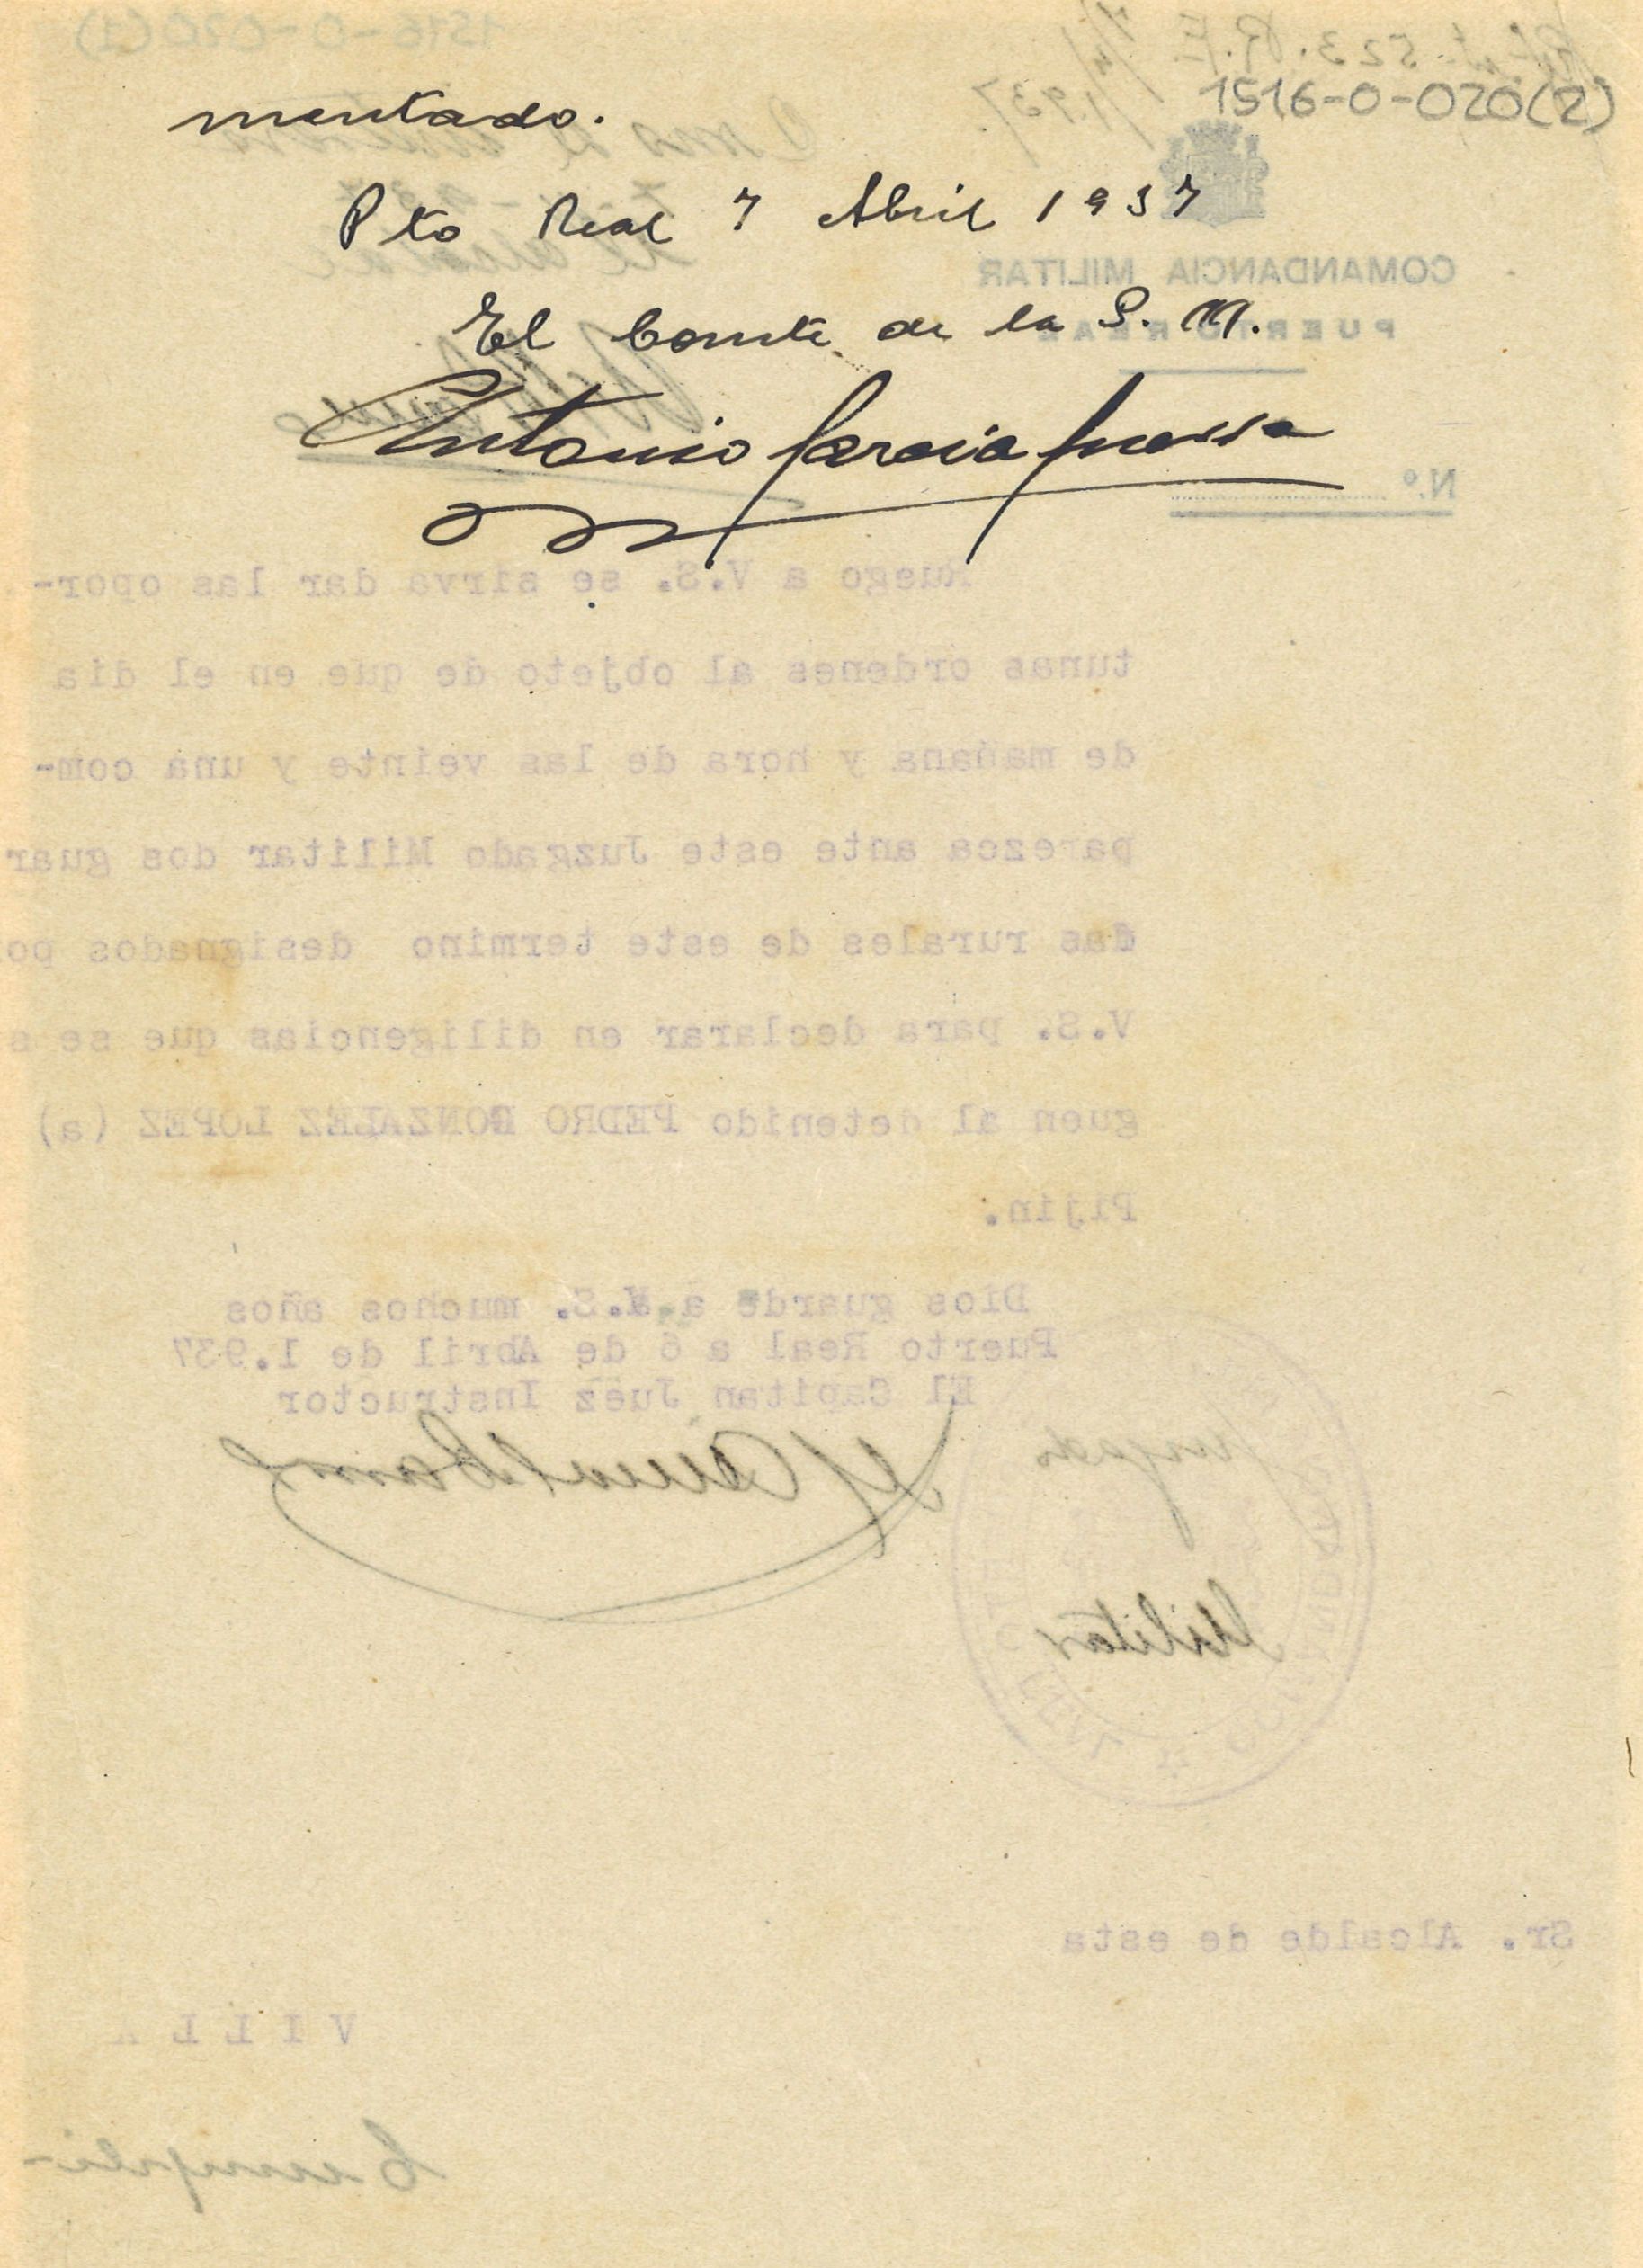 1516-0-020(2)
mentado.
Pto Real 7 Abril 1937
El Comte de la G. M.
Antonio Garcia
1516-0-020(1)
COMANDANCIA MILITAR
PUERTO REAL
N.º
Ruego a V.S. se sirva dar las opor-
tunas ordenes al objeto de que en el dia
de mañana y hora de las veinte y una com-
parezca ante este Juzgado Militar dos guar
das rurales de este termino designados po
V.S. para declarar en diligencias que se s
guen al detenido PEDRO GONZALEZ LOPEZ (a)
Pijin.
Dios guarde a V.S. muchos años
Puerto Real a 6 de Abril de 1.937
El Capitan Juez Instructor
Juzgado
Militar
Sr. Alcalde de esta
VILLA
Cumpli-